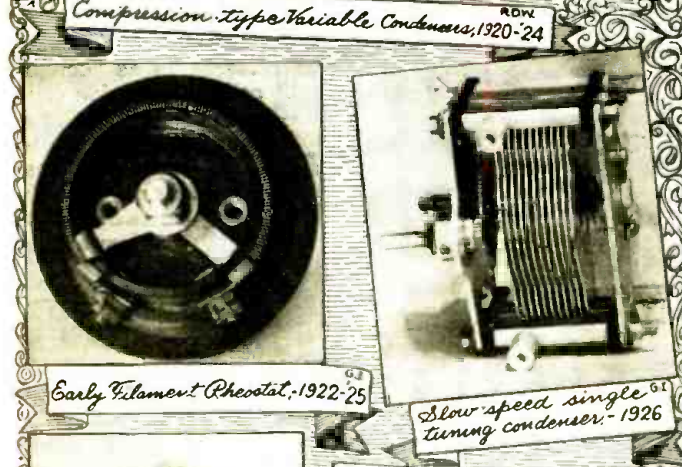 Compression-type Variable Condensers, 1920-'24
RDW
Early Filament Rheostat,-1922-'25
G.I
Slow speed single
G.I
tuning condenser.- 1926